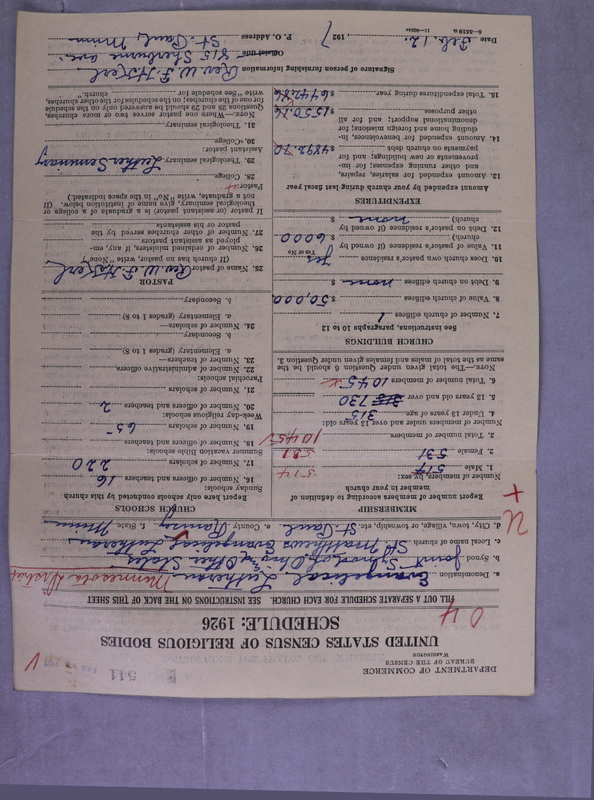 DEPARTMENT OF COMMERCE
BUREAU OF THE CENSUS
WASHINGTON
541
UNITED STATES CENSUS OF RELIGIOUS BODIES
SCHEDULE: 1926
04
FILL OUT A SEPARATE SCHEDULE FOR EACH CHURCH. SEE INSTRUCTIONS ON THE BACK OF THIS SHEET
a. Denomination Evangelical Lutheran Minnesota District
b. Synod Joint Synod of Ohio and Other States
c. Local name of church St. Matthews Evangelical Lutheran
d. City, town, village, or township, etc. St. Paul e. County Ramsey f. State Minn
MEMBERSHIP
Report number of members according to definition of member in your church
Number of members, by sex:
1. Male 517 514
2. Female 531 531
3. Total number of members 1045
Number of members under and over 13 years old:
4. Under 13 years of age 315
5. 13 years old and over 315 730
6. Total number of members 1045
NOTE.—The total given under Question 6 should be the same as the total of males and females given under Question 3.
CHURCH BUILDINGS
See instructions, paragraphs 10 to 12
7. Number of church edifices 1
8. Value of church edifices $ 50,000
9. Debt on church edifices $ none
10. Does church own pastor's residence yes
Yes or No
11. Value of pastor's residence (if owned by church) $ 6000
12. Debt on pastor's residence (if owned by church) $ none
EXPENDITURES
Amount expended by your church during last fiscal year
13. Amount expended for salaries, repairs, and other running expenses; for improvements or new buildings; and for payments on church debt $ 4892.70
14. Amount expended for benevolences, including home and foreign missions; for denominational support; and for all other purposes $ 1550.16
15. Total expenditures during year $ 6442.86
CHURCH SCHOOLS
Report here only schools conducted by this church
Sunday schools:
16. Number of officers and teachers 16
17. Number of scholars 220
Summer vacation Bible schools:
18. Number of officers and teachers
19. Number of scholars 65
Week-day religious schools:
20. Number of officers and teachers 2
21. Number of scholars
Parochial schools:
22. Number of administrative officers
23. Number of teachers—
a. Elementary (grades 1 to 8)
b. Secondary
24. Number of scholars—
a. Elementary (grades 1 to 8)
b. Secondary
PASTOR
25. Name of pastor Rev. W. F.
(If church has no pastor, write "None")
26. Number of ordained ministers, if any, employed as assistant pastors
27. Number of other churches served by the pastor or his assistants
If pastor (or assistant pastor) is a graduate of a college or theological seminary, give name of institution below. (If not a graduate, write "No" in the space indicated.)
Pastor:
28. College
29. Theological seminary Luther Seminary
Assistant Pastor:
30. College
31. Theological seminary
NOTE.—Where one pastor serves two or more churches, Questions 28 and 29 should be answered only on the schedule for one of the churches; on the schedules for the other churches, write "See schedule for church."
Signature of person furnishing information Rev. W. F.
Official title
P. O. Address 815 Sherburne ave.
St. Paul, Minn
Date Feb. 12, 1927